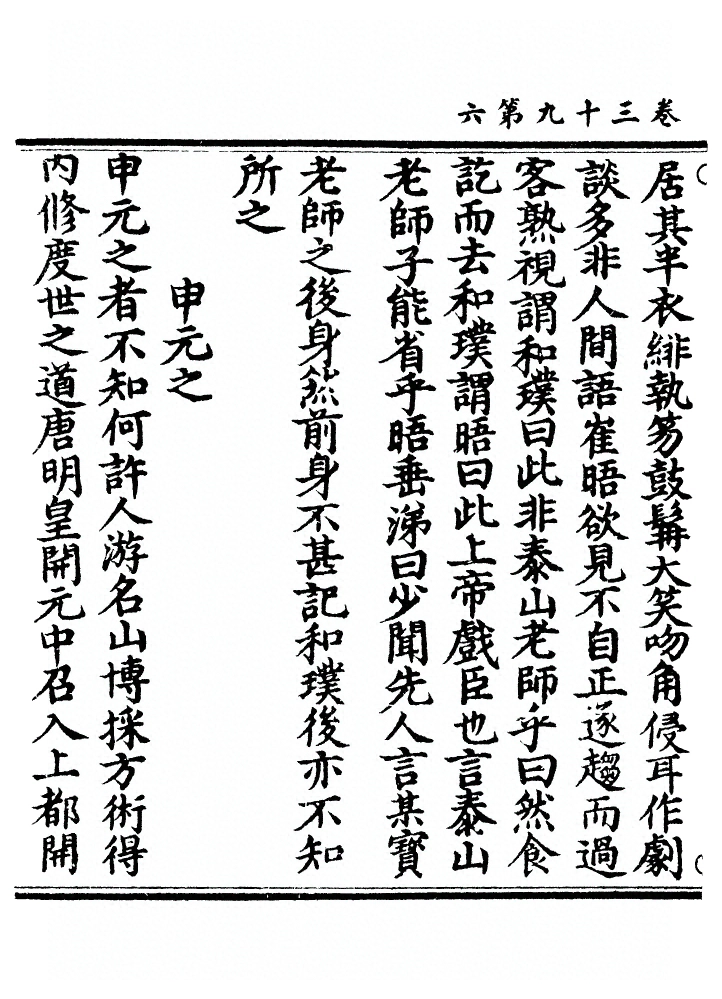 卷三十九第六
居其半衣緋執笏鼓髯大笑吻角侵耳作劇
談多非人間語崔晤欲見不自正遂趨而過
客熟視謂和璞曰此非泰山老師乎曰然食
訖而去和璞謂晤曰此上帝戲臣也言泰山
老師子能省乎晤垂涕曰少聞先人言某寳
老師之後身然前身不甚記和璞後亦不知
所之
申元之
申元之者不知何許人游名山博採方術得
內修度世之道唐明皇開元中召入上都開